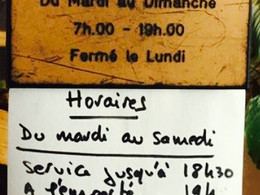 Du Mardi au Dimanche
7h.00 - 19h.00
Fermé le Lundi
Horaires
Du mardi au samedi
Service jusqu'à 18h30
A l'emporté 19h